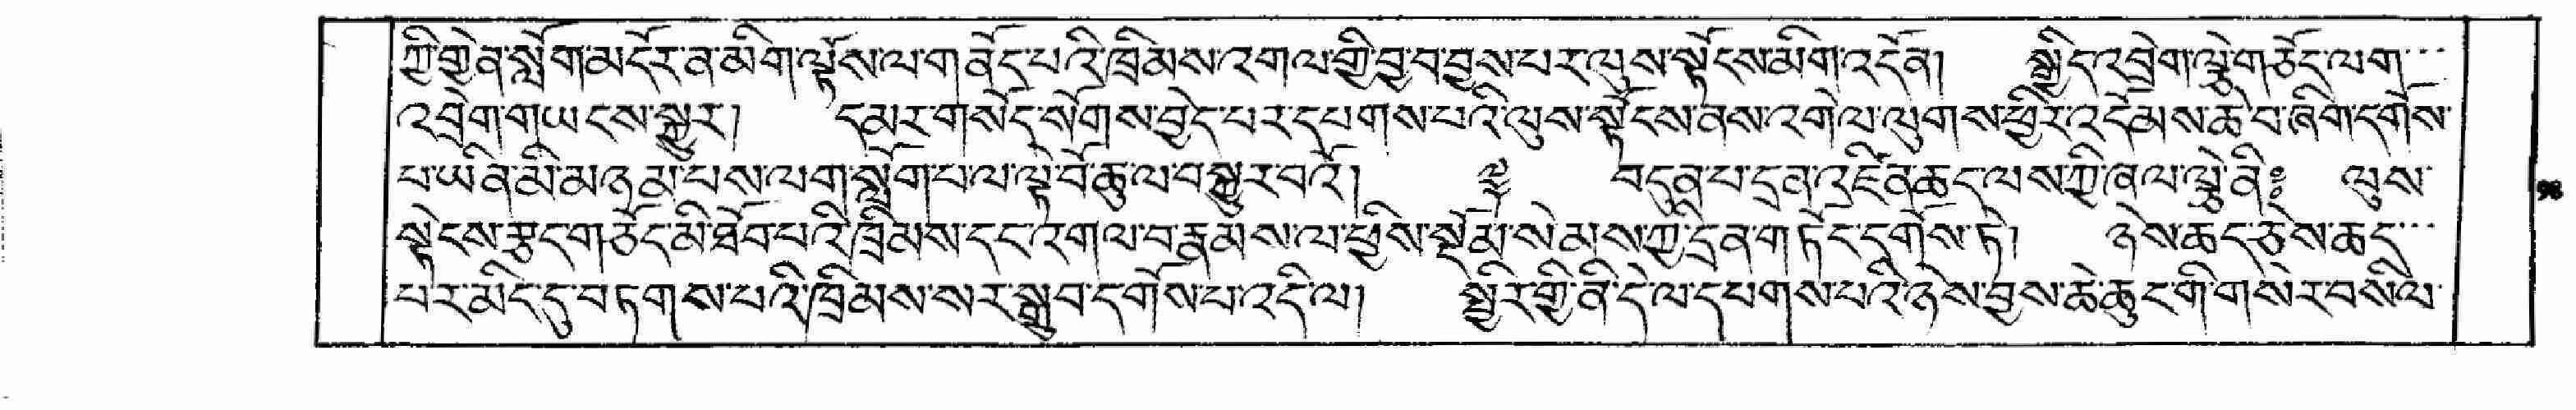 ཀྱི་གྱེན་སློག་མདོར་ན་མིག་ལྟོས་ལ་གནོད་པའི་ཁྲིམས་འགལ་གྱི་བྱ་བ་བྱས་པར་ལུས་སྟོངས་མིག་འདོན།     སྒྱིད་འབྲེག་ལྕེ་གཅོད་ལག་་་
འབྲེག་གཡངས་སྐྱུར།     དམར་གསོད་སོགས་བྱེད་པར་དཔགས་པའི་ལུས་སྟོངས་ནས་འགེལ་ལུགས་ཕྱིར་འདེམས་ཆེ་བ་ཞིག་དགོས་
པ་ཡིན་མི་མཉམ་པས་ལག་སློག་པ་ལ་ལྟེ་བོ་ཆུ་ལ་བསྐྱུར་བའོ།     ༈     བདུན་པ་དྲན་འཛིན་ཆད་ལས་ཀྱི་ཞལ་ལྕེ་ནི༔   ལུས་
སྟེངས་རྩད་གཅོད་མི་ཐོབ་པའི་ཁྲིམས་དང་འགལ་བ་རྣམས་ལ་ཕྱིས་སྡོམ་སེམས་ཀྱི་དྲན་གཏོད་དགོས་ཏེ།     ཉེས་ཆད་ཅེས་ཆད་་་
པར་མིང་དུ་བཏགས་པའི་ཁྲིམས་སར་སྒྲུབ་དགོས་པ་འདི་ལ།     སྤྱིར་གྱི་ནི་དེ་ལ་དཔགས་པའི་ཉེས་བྱས་ཆེ་ཆུང་གི་གསེར་བསིལ་